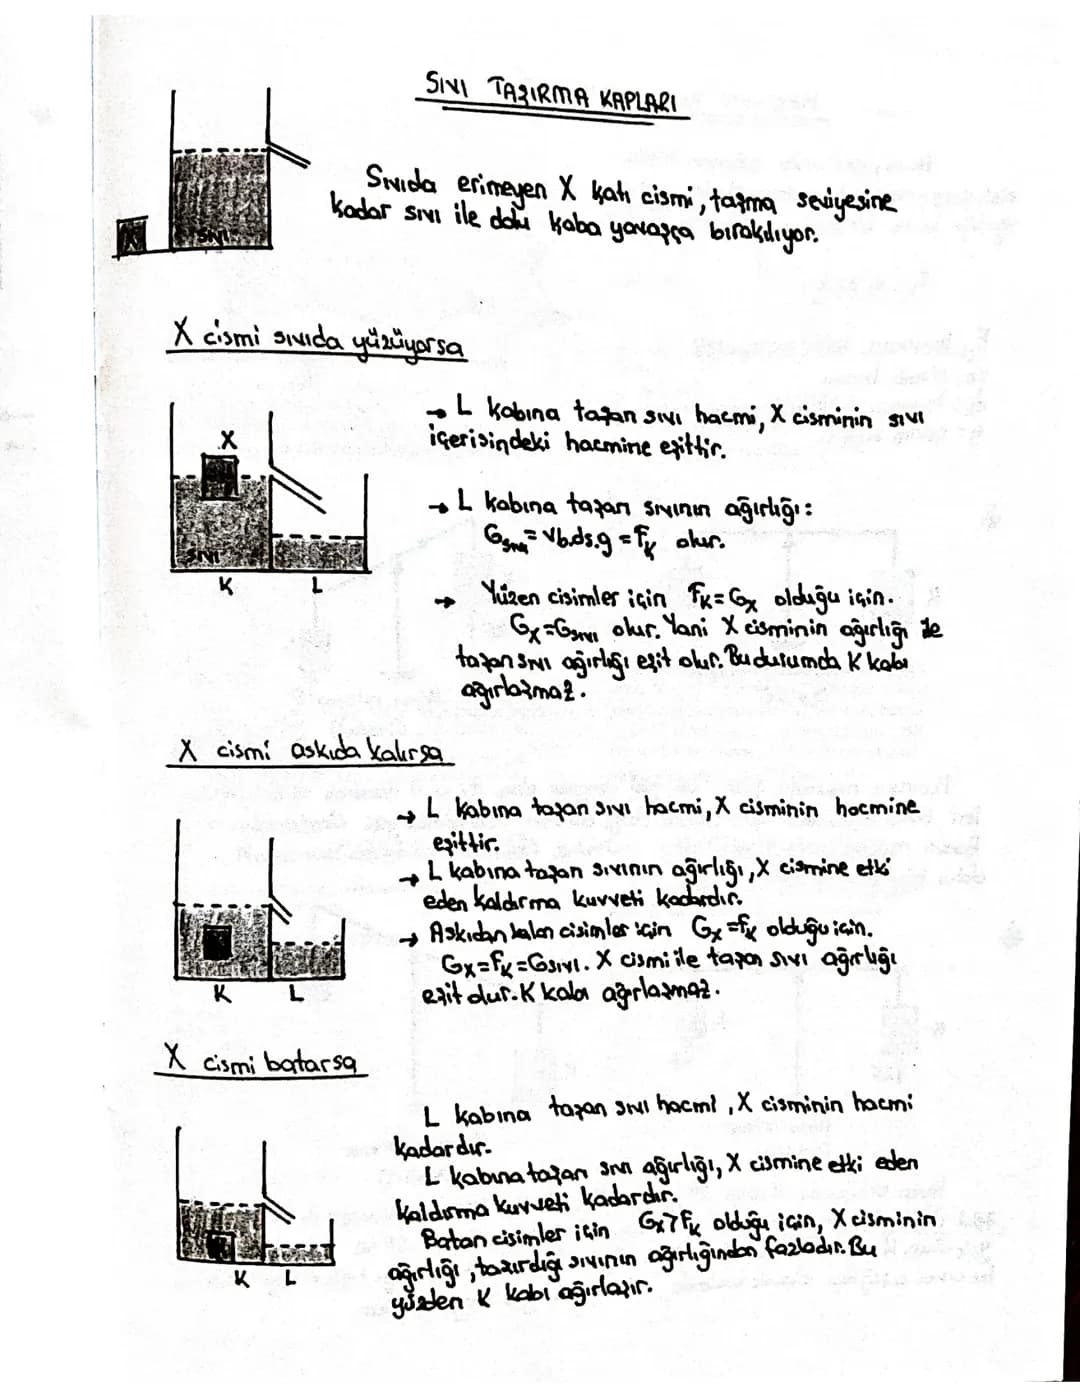 SIVI TAŞIRMA KAPLARI
Sıvıda erimeyen X katı cismi, taşma seviyesine
kadar sıvı ile dolu kaba yavaşça bırakılıyor.
X
SIVI
X cismi sıvıda yüzüyorsa
X
SIVI
K L
→ L kabına taşan sıvı hacmi, X cisminin sıvı
içerisindeki hacmine eşittir.
→ L kabına taşan sıvının ağırlığı:
Gsıvı = Vb.ds.g = Fk olur.
→ Yüzen cisimler için Fk=Gx olduğu için.
Gx=Gsıvı olur. Yani X cisminin ağırlığı ile
taşan sıvı ağırlığı eşit olur. Bu durumda K kabı
ağırlaşmaz.
X cismi askıda kalırsa
K L
→ L kabına taşan sıvı hacmi, X cisminin hacmine
eşittir.
→ L kabına taşan sıvının ağırlığı, X cismine etki
eden kaldırma kuvveti kadardır.
→ Askıdan kalan cisimler için Gx=Fk olduğu için.
Gx=Fk=Gsıvı. X cismi ile taşan sıvı ağırlığı
eşit olur. K kabı ağırlaşmaz.
X cismi batarsa
K L
L kabına taşan sıvı hacmi, X cisminin hacmi
kadardır.
L kabına taşan sıvı ağırlığı, X cismine etki eden
kaldırma kuvveti kadardır.
Batan cisimler için Gx>Fk olduğu için, X cisminin
ağırlığı, taşırdığı sıvının ağırlığından fazladır. Bu
yüzden K kabı ağırlaşır.